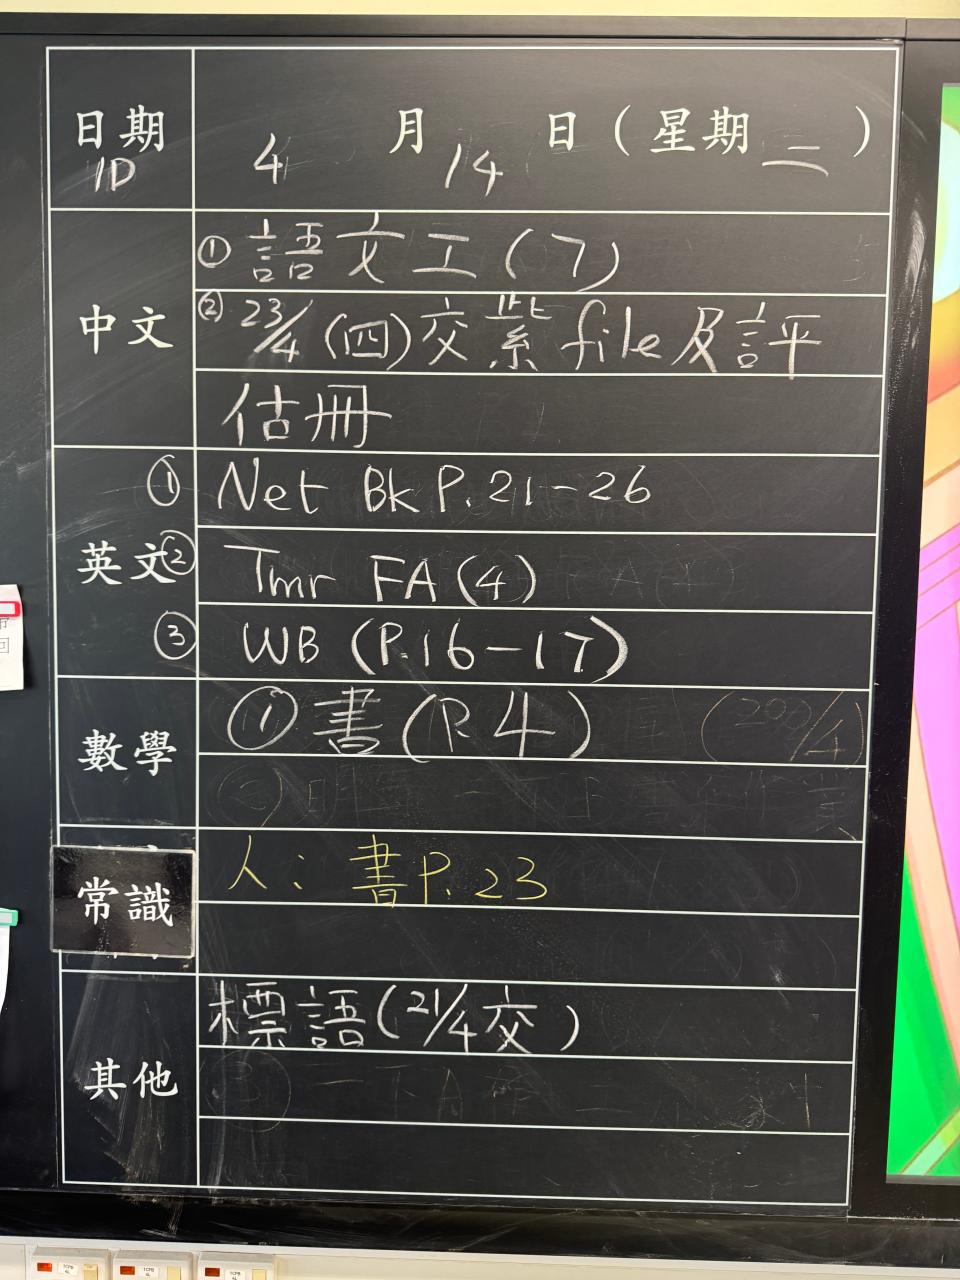 日期 4 月 14 日 ( 星期 二 )
1D
① 語文工 (7)
中文 ② 23/4 (四) 交紫 file 及評
估冊
① Net Bk P. 21-26
英文 ② Tmr FA (4)
③ WB (P.16-17)
數學 ① 書 (P. 4)
常識 人: 書 P. 23
標語 (21/4 交)
其他